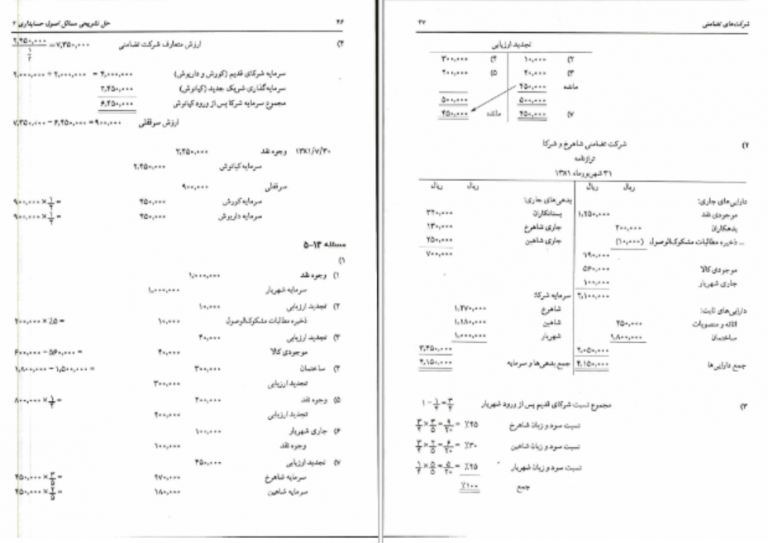 ۴۶ حل تشریحی مسائل اصول حسابداری ۲
۴) ارزش متعارف شرکت تضامنی ۷,۳۵۰,۰۰۰ =
سرمایه شرکای قدیم (کورش و داریوش) ۴,۰۰۰,۰۰۰ = ۲,۰۰۰,۰۰۰ + ۲,۰۰۰,۰۰۰
سرمایه‌گذاری شریک جدید (کیانوش) ۲,۴۵۰,۰۰۰
مجموع سرمایه شرکا پس از ورود کیانوش ۶,۴۵۰,۰۰۰
ارزش سرقفلی ۹۰۰,۰۰۰ = ۶,۴۵۰,۰۰۰ - ۷,۳۵۰,۰۰۰
۱۳۸۱/۷/۳۰ وجوه نقد ۲,۴۵۰,۰۰۰
سرمایه کیانوش ۲,۴۵۰,۰۰۰
سرقفلی ۹۰۰,۰۰۰
سرمایه کورش ۴۵۰,۰۰۰ ۹۰۰,۰۰۰ × ۱/۲ =
سرمایه داریوش ۴۵۰,۰۰۰ ۹۰۰,۰۰۰ × ۱/۲ =
مسئله ۱۳-۵
۱)
۱) وجوه نقد ۱,۰۰۰,۰۰۰
سرمایه شهریار ۱,۰۰۰,۰۰۰
۲) تجدید ارزیابی ۱۰,۰۰۰
ذخیره مطالبات مشکوک‌الوصول ۱۰,۰۰۰ ۲۰۰,۰۰۰ × ٪۵ =
۳) تجدید ارزیابی ۴۰,۰۰۰
موجودی کالا ۴۰,۰۰۰ ۶۰۰,۰۰۰ - ۵۶۰,۰۰۰ =
۴) ساختمان ۳۰۰,۰۰۰ ۱,۸۰۰,۰۰۰ - ۱,۵۰۰,۰۰۰ =
تجدید ارزیابی ۳۰۰,۰۰۰
۵) وجوه نقد ۲۰۰,۰۰۰ ۸۰۰,۰۰۰ × ۱/۴ =
تجدید ارزیابی ۲۰۰,۰۰۰
۶) جاری شهریار ۱۰۰,۰۰۰
وجوه نقد ۱۰۰,۰۰۰
۷) تجدید ارزیابی ۴۵۰,۰۰۰
سرمایه شاهرخ ۲۷۰,۰۰۰ ۴۵۰,۰۰۰ × ۳/۵ =
سرمایه شاهین ۱۸۰,۰۰۰ ۴۵۰,۰۰۰ × ۲/۵ =
شرکت‌های تضامنی ۴۷
تجدید ارزیابی
۲) ۱۰,۰۰۰ ۴) ۳۰۰,۰۰۰
۳) ۴۰,۰۰۰ ۵) ۲۰۰,۰۰۰
مانده ۴۵۰,۰۰۰
۵۰۰,۰۰۰ ۵۰۰,۰۰۰
۷) ۴۵۰,۰۰۰ مانده ۴۵۰,۰۰۰
۲) شرکت تضامنی شاهرخ و شرکا
ترازنامه
۳۱ شهریورماه ۱۳۸۱
ریال ریال ریال ریال
دارایی‌های جاری: بدهی‌های جاری:
موجودی نقد ۱,۲۵۰,۰۰۰ بستانکاران ۳۲۰,۰۰۰
بدهکاران ۲۰۰,۰۰۰ جاری شاهرخ ۱۳۰,۰۰۰
ذخیره مطالبات مشکوک‌الوصول (۱۰,۰۰۰) جاری شاهین ۲۵۰,۰۰۰
۱۹۰,۰۰۰ ۷۰۰,۰۰۰
موجودی کالا ۵۶۰,۰۰۰
جاری شهریار ۱۰۰,۰۰۰
۲,۱۰۰,۰۰۰ سرمایه شرکا:
دارایی‌های ثابت: شاهرخ ۱,۲۷۰,۰۰۰
اثاثه و منصوبات ۲۵۰,۰۰۰ شاهین ۱,۱۸۰,۰۰۰
ساختمان ۱,۸۰۰,۰۰۰ شهریار ۱,۰۰۰,۰۰۰
۲,۰۵۰,۰۰۰ ۳,۴۵۰,۰۰۰
جمع دارایی‌ها ۴,۱۵۰,۰۰۰ جمع بدهی‌ها و سرمایه ۴,۱۵۰,۰۰۰
۳) مجموع نسبت شرکای قدیم پس از ورود شهریار ۱ - ۱/۴ = ۳/۴
نسبت سود و زیان شاهرخ ۳/۴ × ۳/۵ = ۹/۲۰ = ٪۴۵
نسبت سود و زیان شاهین ۳/۴ × ۲/۵ = ۶/۲۰ = ٪۳۰
نسبت سود و زیان شهریار ۱/۴ × ۵/۵ = ۵/۲۰ = ٪۲۵
جمع ٪۱۰۰